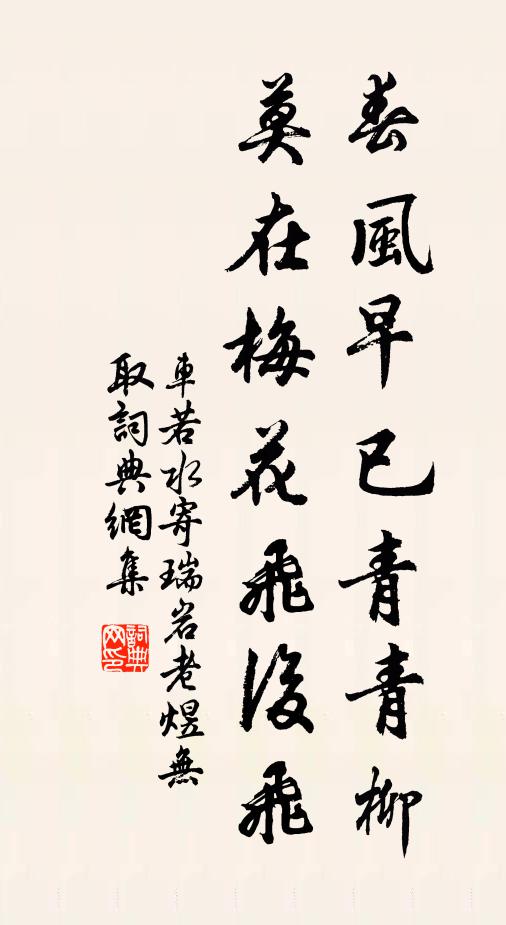 春風早已青青柳
莫在梅花飛後飛
車若水寄瑞岩老煜無
取詞典網集
詞典
網印